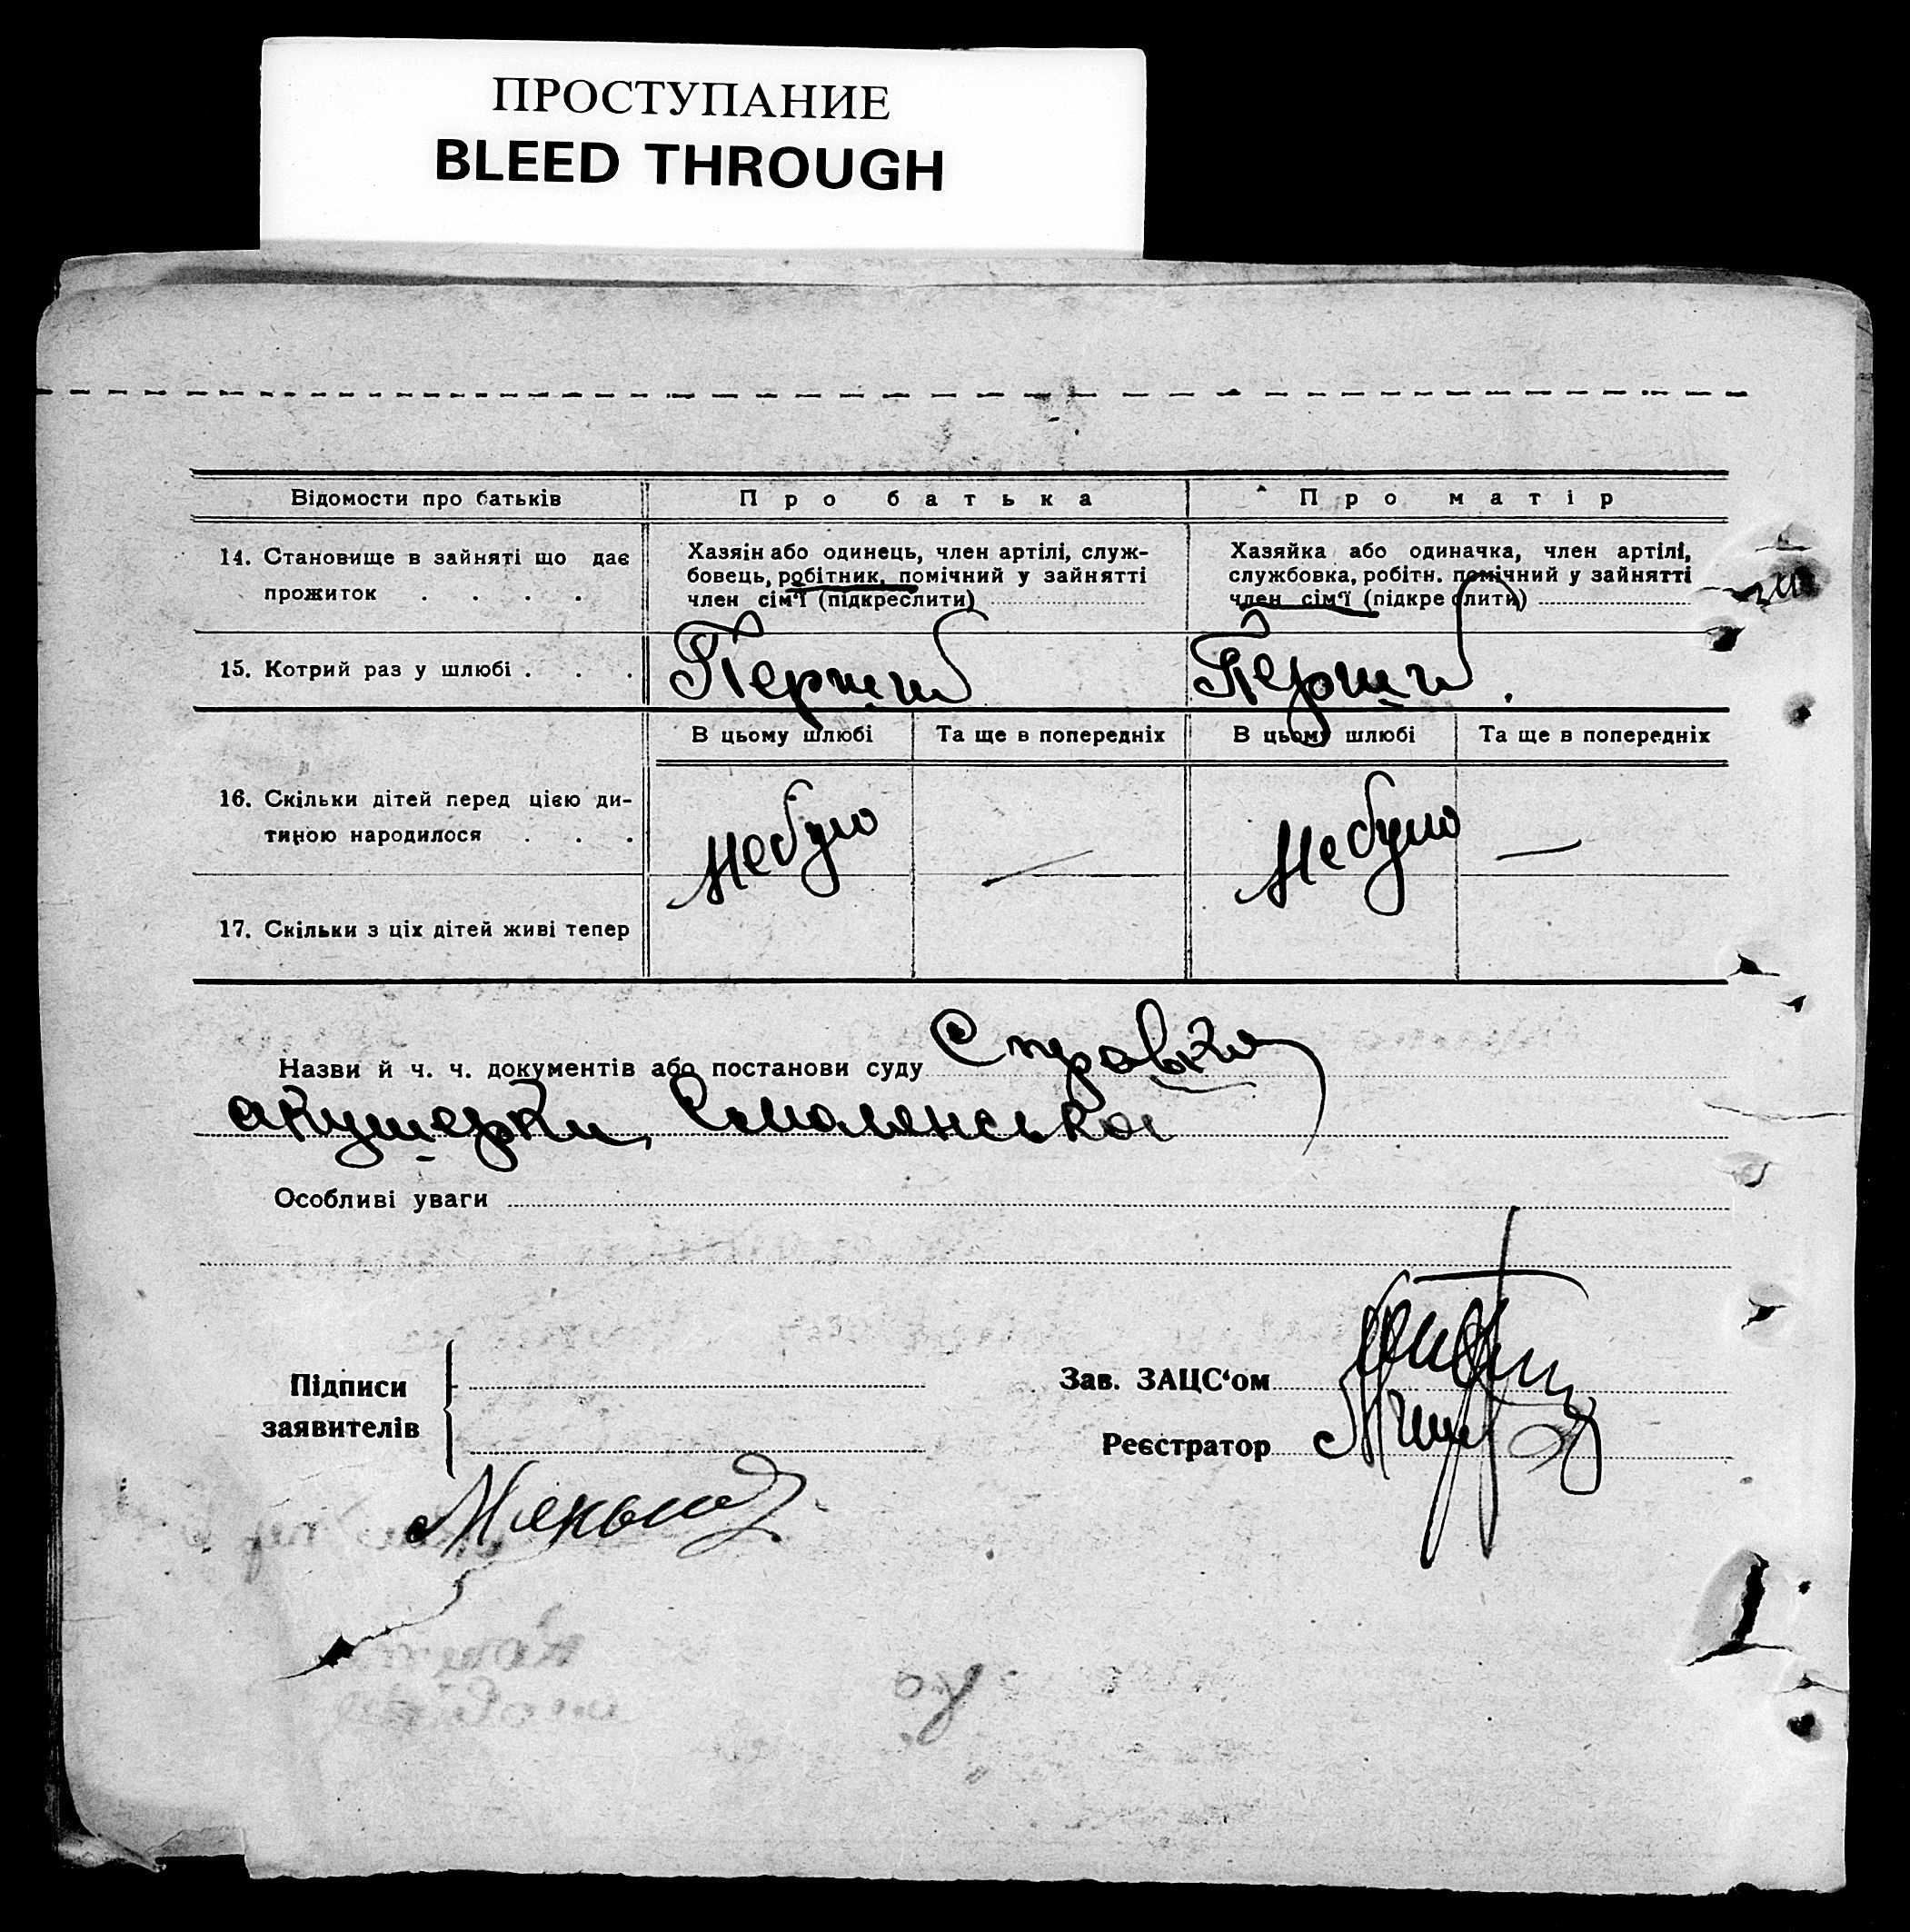 ПРОСТУПАНИЕ
BLEED THROUGH
Відомости про батьків
Про батька
Про матір
14. Становище в зайняті що дає
прожиток . . . .
Хазяін або одинець, член артілі, служ-
бовець, робітник, помічний у зайнятті
член сім'ї (підкреслити)
Хазяйка або одиначка, член артілі,
службовка, робітн. помічний у зайнятті
член сім'ї (підкреслити)
15. Котрий раз у шлюбі . . .
Перший
Перший.
В цьому шлюбі
Та ще в попередніх
В цьому шлюбі
Та ще в попередніх
16. Скільки дітей перед цією ди-
тиною народилося . . .
Не було
—
Не було
—
17. Скільки з ціх дітей живі тепер
Назви й ч. ч. документів або постанови суду Справка
акушерки, Смолянської
Особливі уваги
Підписи
заявителів
Зав. ЗАЦС'ом
Реєстратор